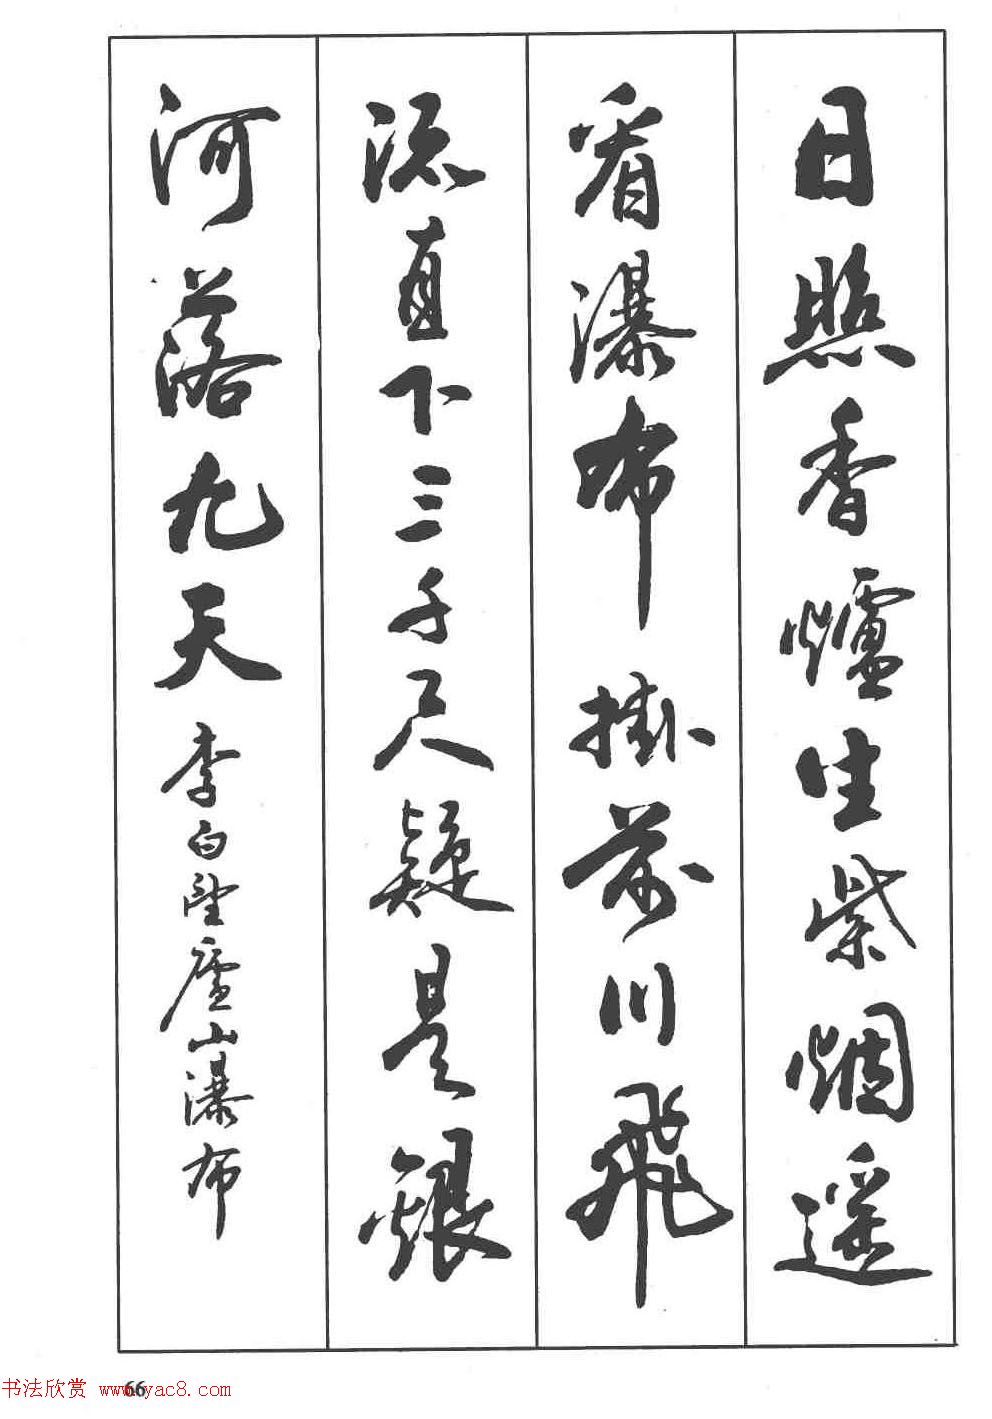 日照香爐生紫烟遥
看瀑布掛前川飛
流直下三千尺疑是銀
河落九天 李白望廬山瀑布
66
书法欣赏 www.yac8.com